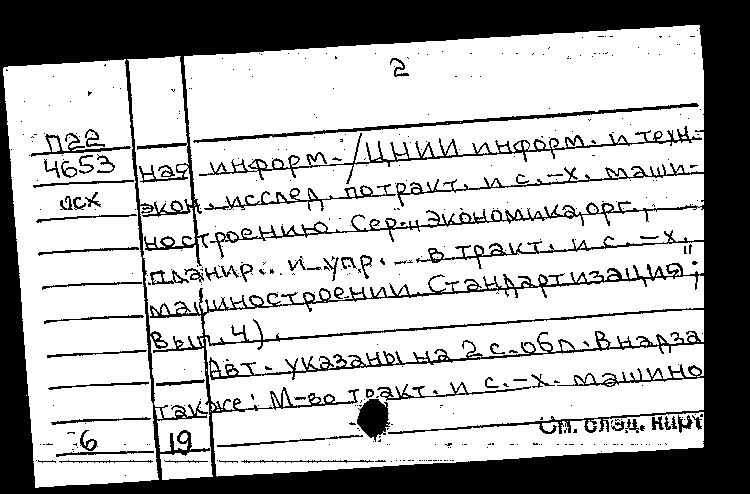 2
П22
4653 ная информ. / ЦНИИ информ. и техн.-
исх экон. исслед. по тракт. и с.-х. маши-
ностроению. Сер. "Экономика, орг.,
планир. и упр. в тракт. и с.-х.
машиностроении. Стандартизация";
Вып. 4).
Авт. указаны на 2 с. обл. В надза
также: М-во тракт. и с.-х. машино
6 19 См. след. карт